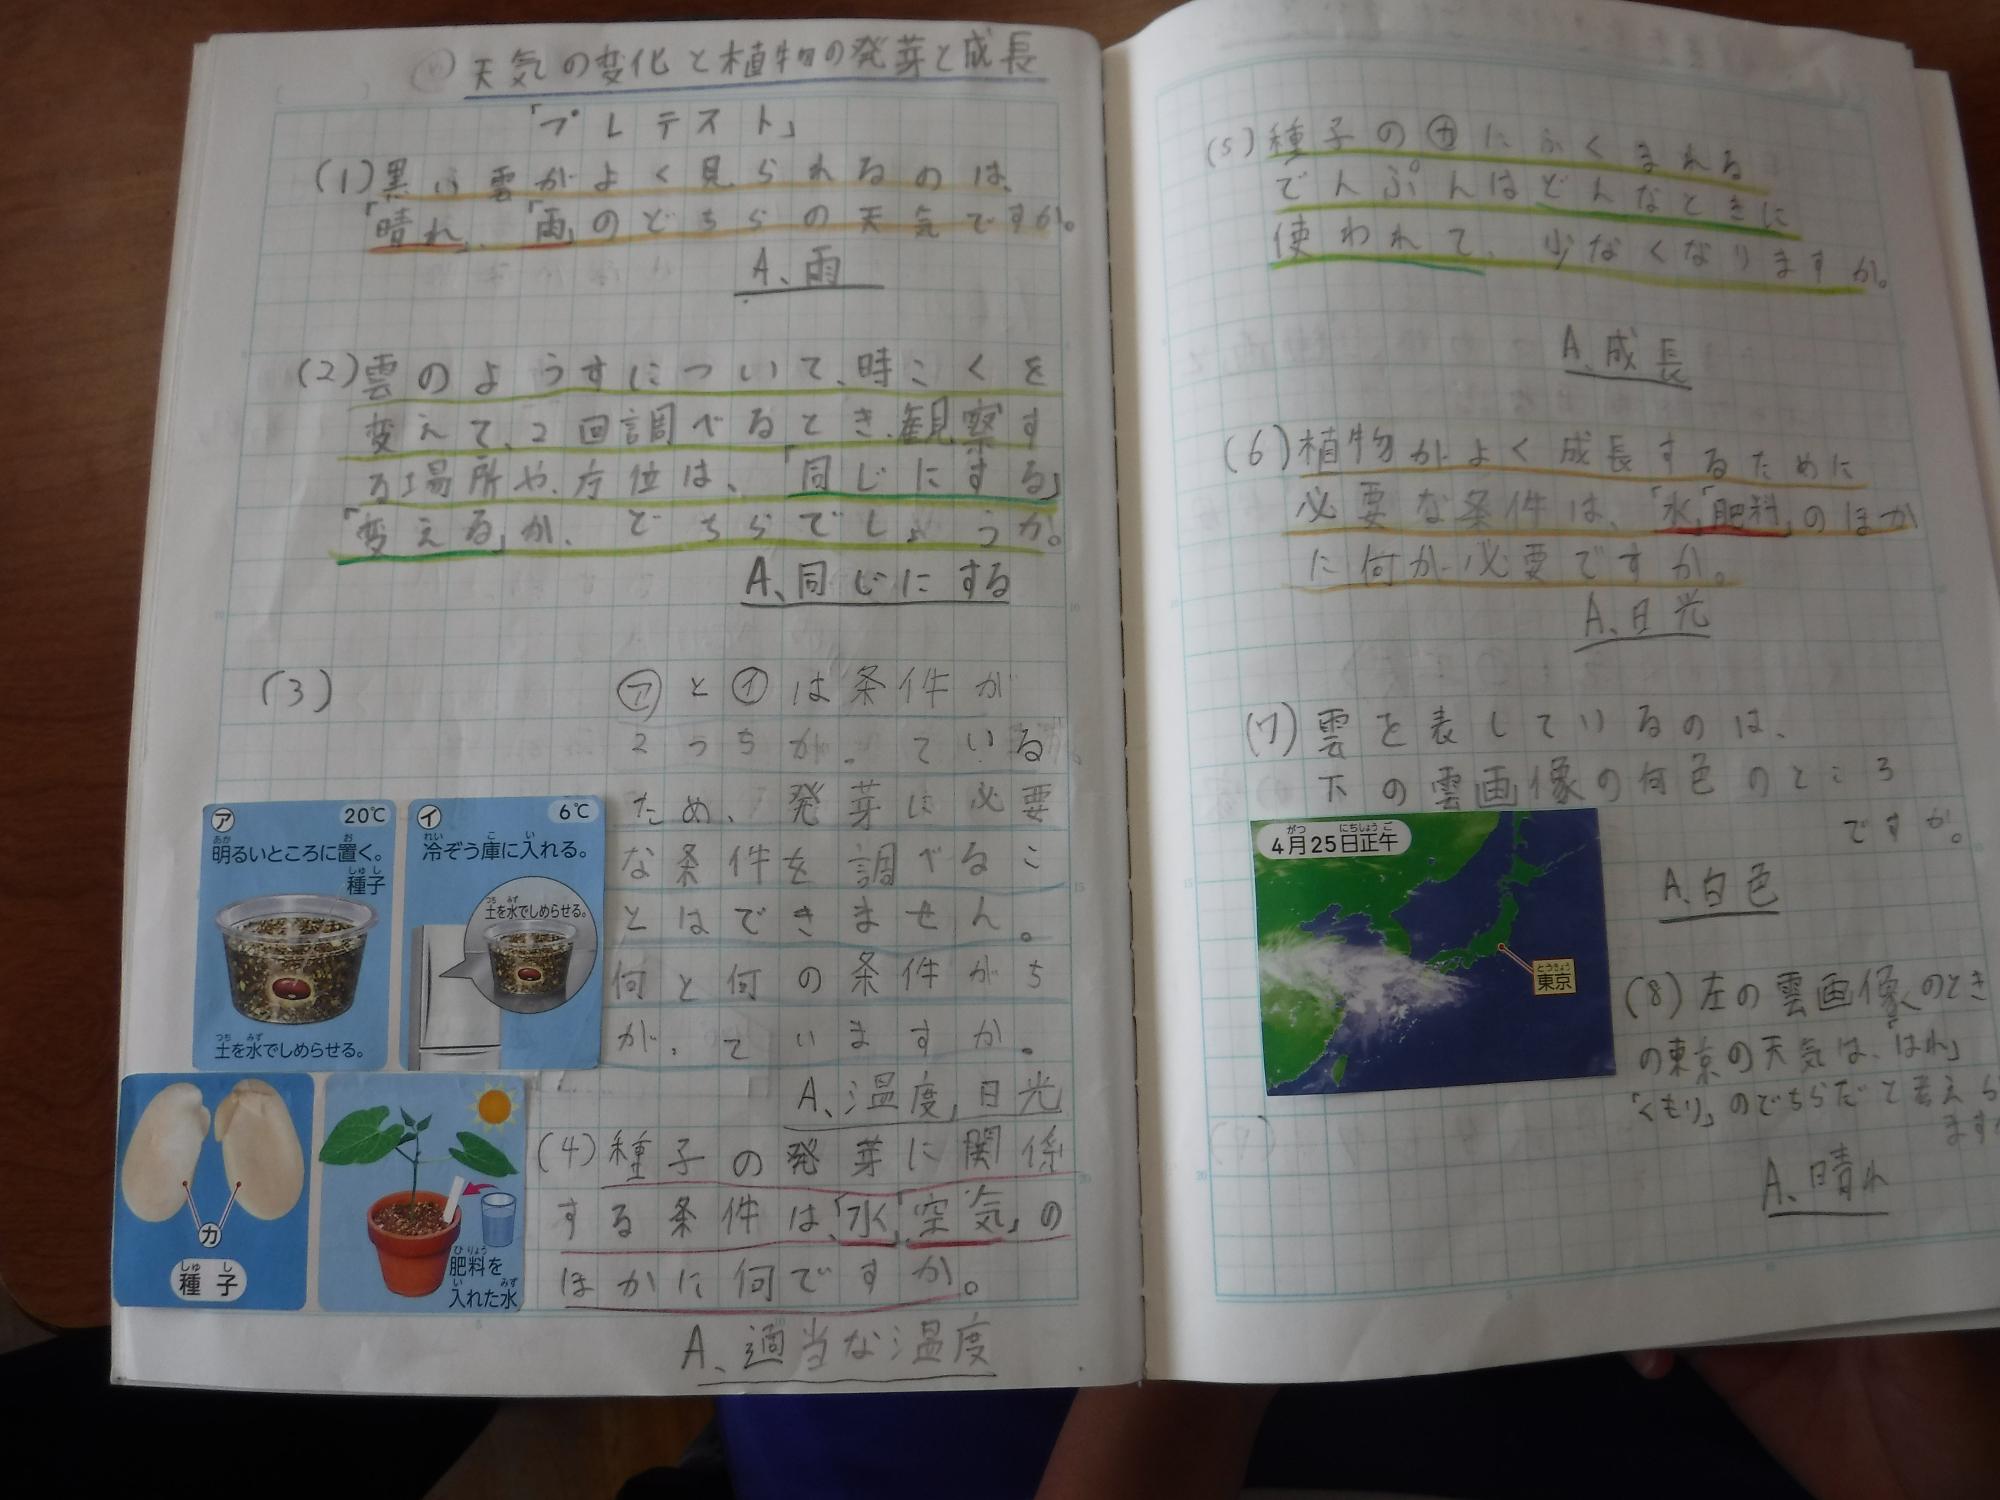 天気の変化と植物の発芽と成長
「プレテスト」
(1)黒い雲がよく見られるのは、
「晴れ」、「雨」のどちらの天気ですか。
A、雨
(2)雲のようすについて、時こくを
変えて、2回調べるとき、観察す
る場所や、方位は、「同じにする」
「変える」か、どちらでしょうか。
A、同じにする
(3)
㋐と㋑は条件が
2つちがっている
ため、発芽に必要
な条件を調べるこ
とはできません。
何と何の条件がち
がっていますか。
A、温度、日光
ア 20℃
あか お
明るいところに置く。
しゅし
種子
つち みず
土を水でしめらせる。
イ 6℃
れい こ い
冷ぞう庫に入れる。
つち みず
土を水でしめらせる。
カ
しゅ し
種子
ひりょう
肥料を
い みず
入れた水
(4)種子の発芽に関係
する条件は、「水」「空気」の
ほかに何ですか。
A、適当な温度
(5)種子の㋕にふくまれる
でんぷんはどんなときに
使われて、少なくなりますか。
A、成長
(6)植物がよく成長するために
必要な条件は、「水」「肥料」のほか
に何が必要ですか。
A、日光
(7)雲を表しているのは、
下の雲画像の何色のところ
ですか。
A、白色
がつ にちしょうご
4月25日正午
とうきょう
東京
(8)左の雲画像のとき
の東京の天気は、「はれ」
「くもり」のどちらだと考えら
ますか
A、晴れ